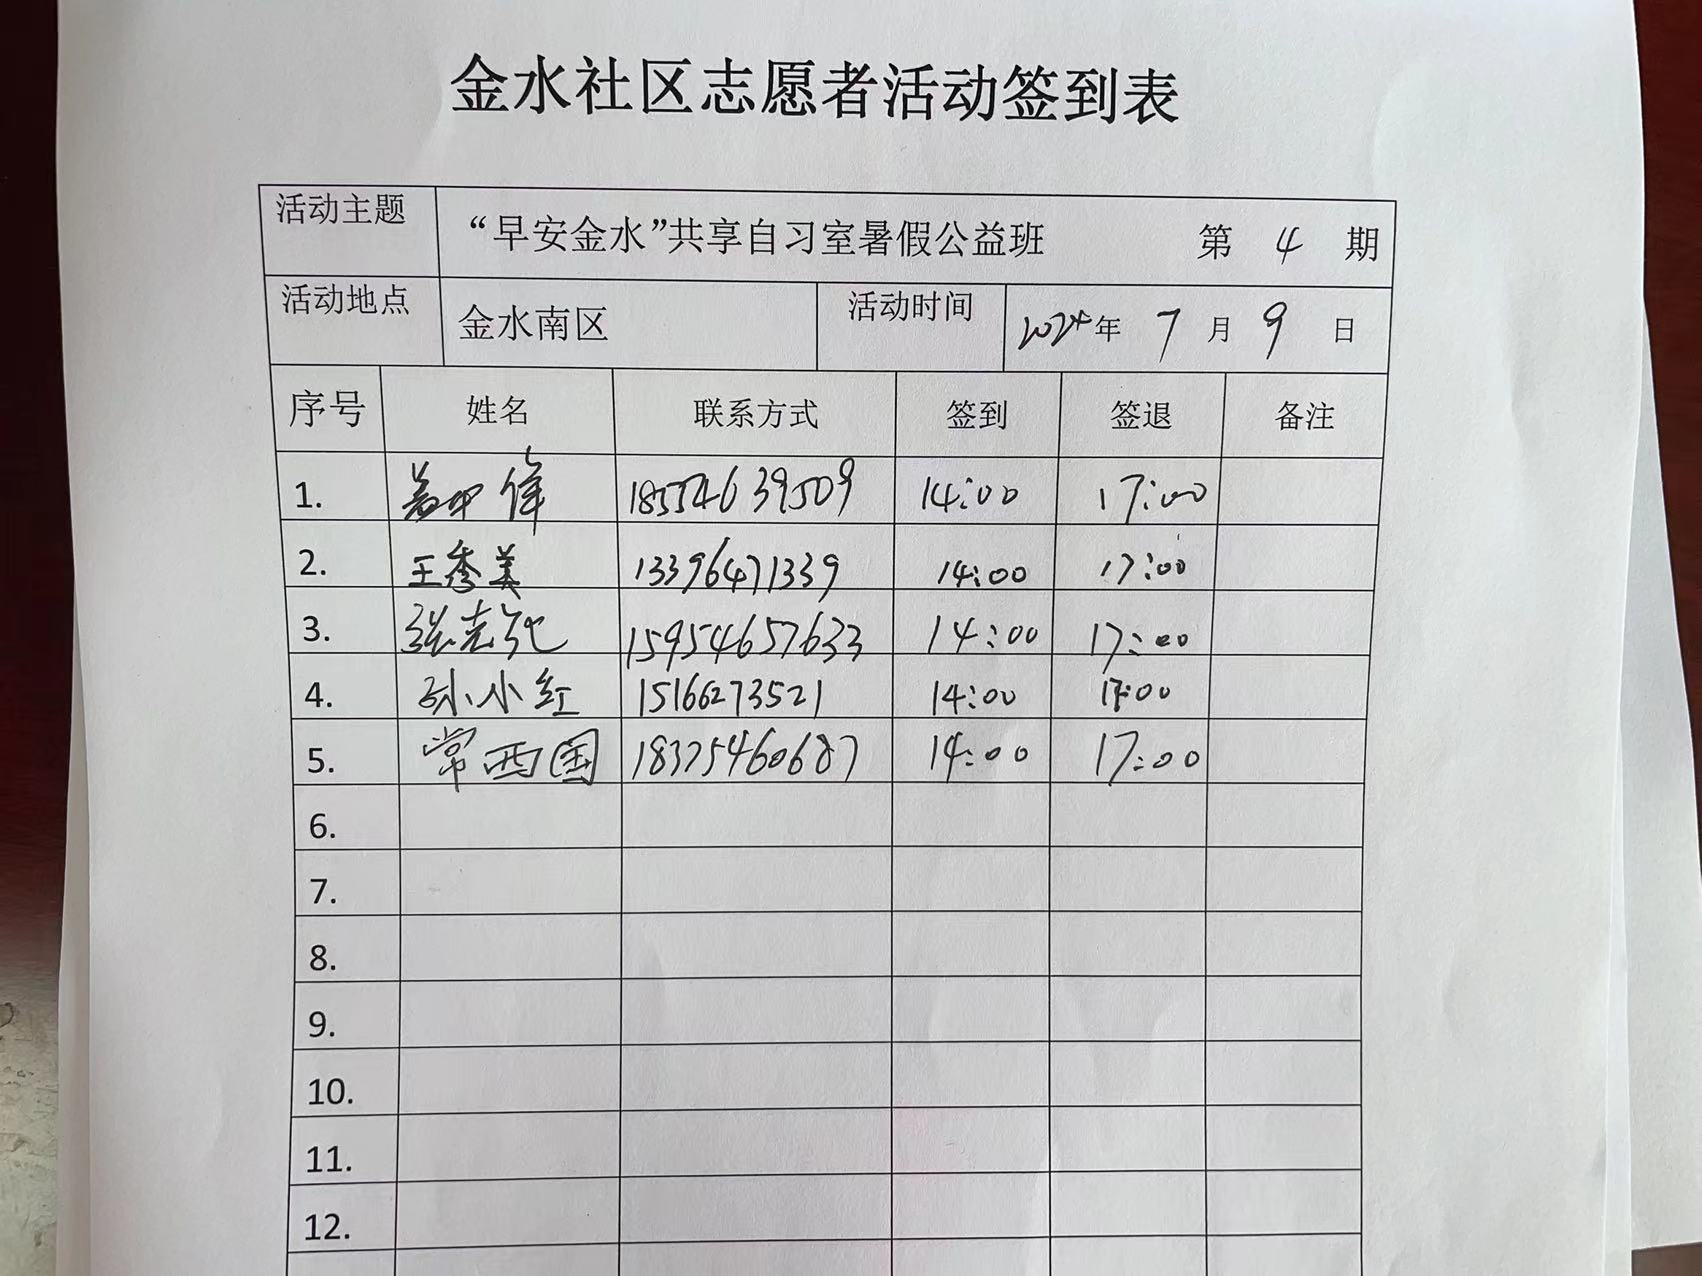 金水社区志愿者活动签到表
活动主题 “早安金水”共享自习室暑假公益班 第 4 期
活动地点 金水南区 活动时间 2024年 7月 9日
序号 姓名 联系方式 签到 签退 备注
1. 18554639509 14:00 17:00
2. 王秀美 13396471339 14:00 17:00
3. 张志弛 15954657633 14:00 17:00
4. 孙小红 15166273521 14:00 17:00
5. 常西国 18375460687 14:00 17:00
6.
7.
8.
9.
10.
11.
12.